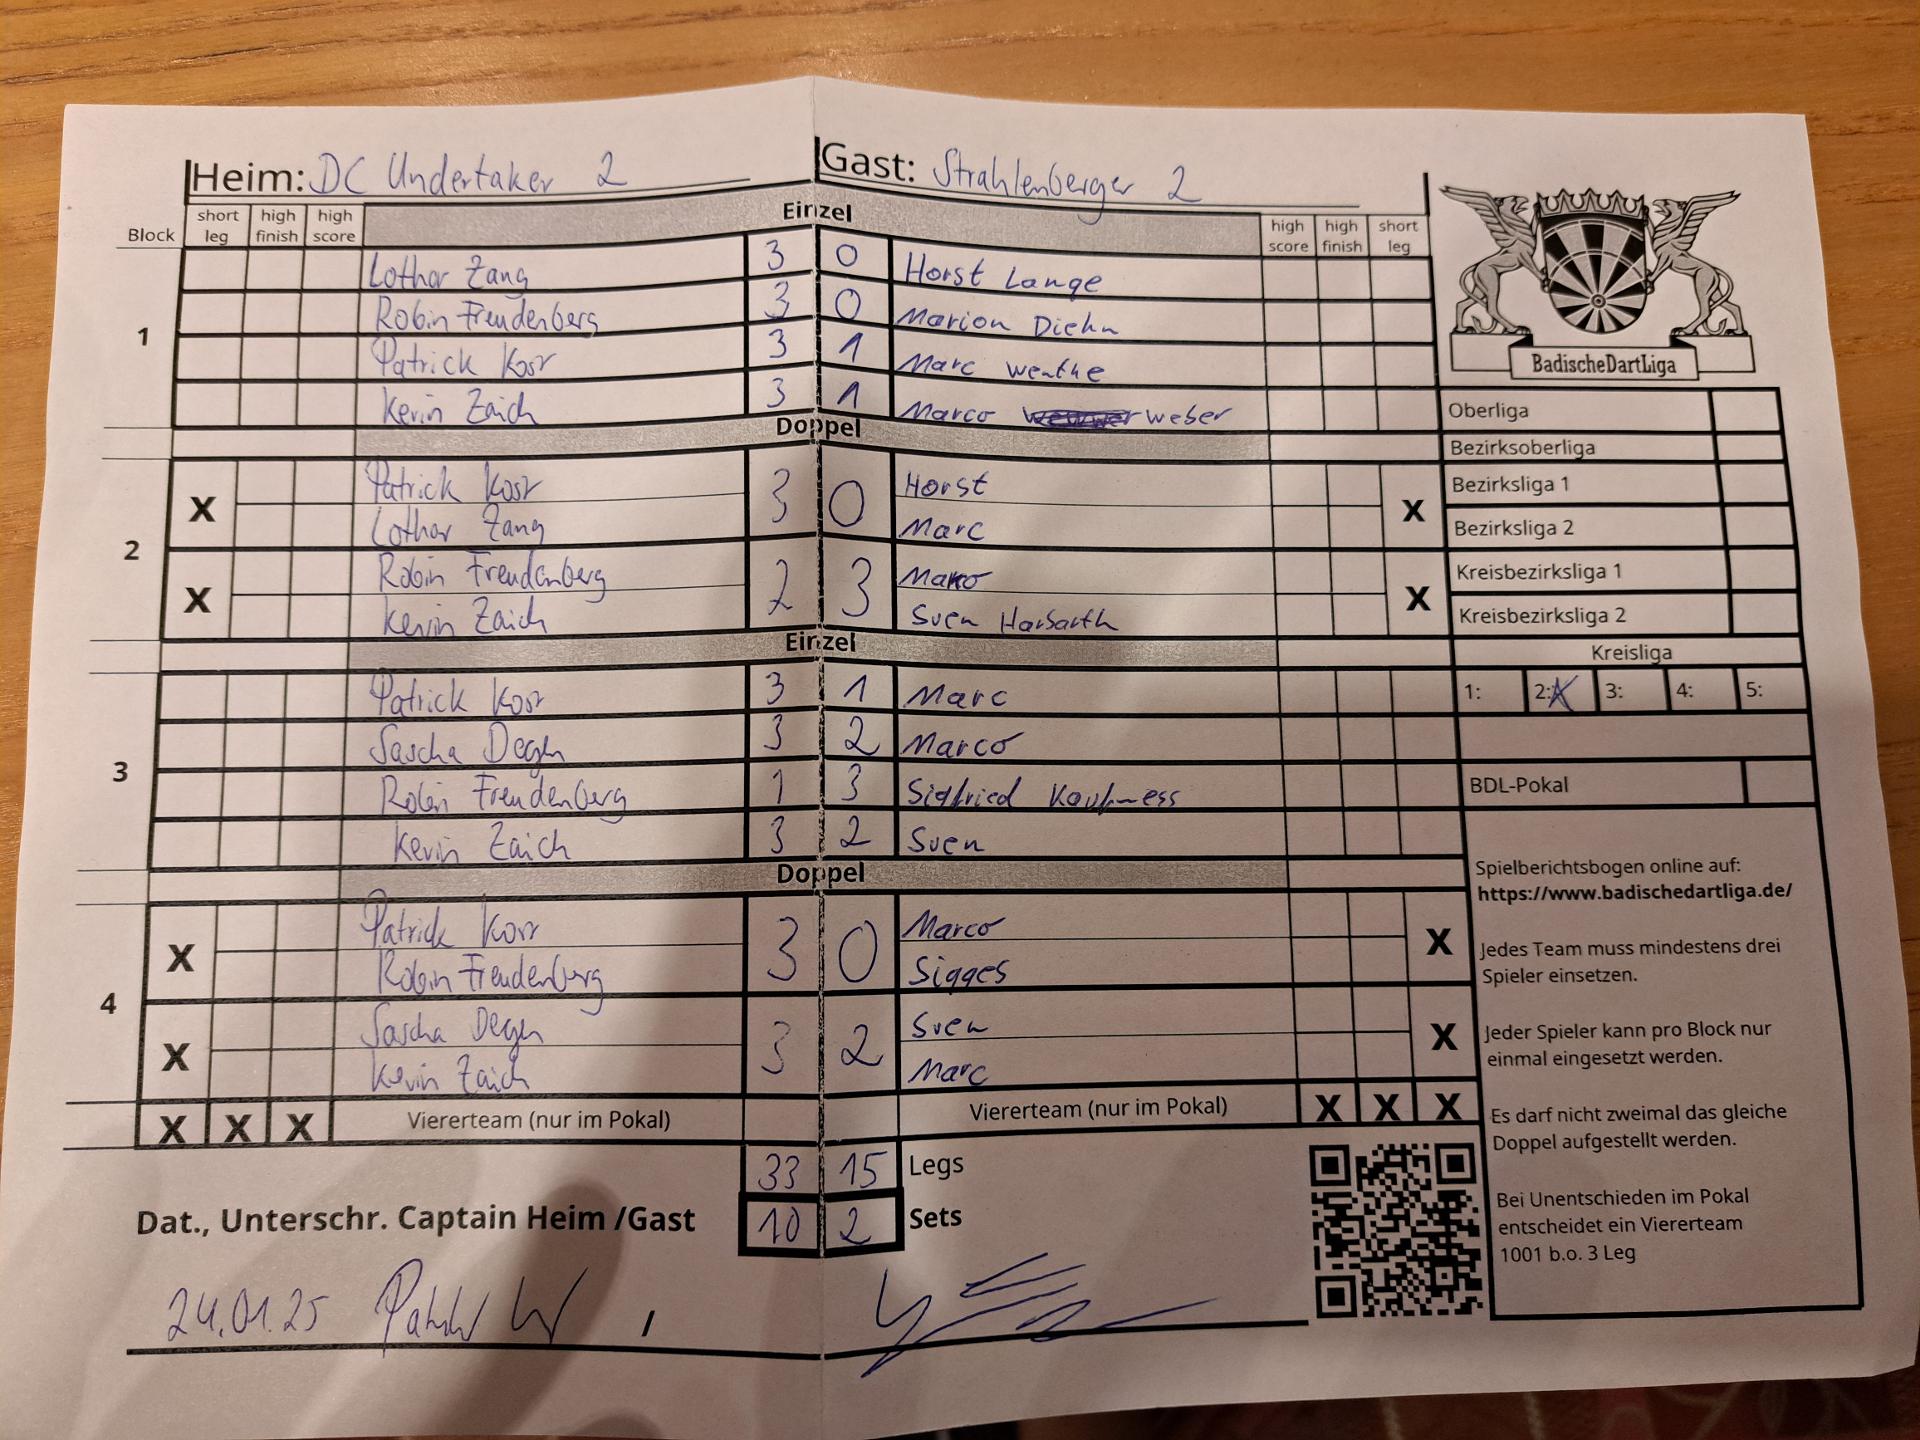 Heim: DC Undertaker 2 Gast: Strahlenberger 2
Block short leg high finish high score Einzel high score high finish short leg
1
Lothar Zang 3 0 Horst Lange
Robin Freudenberg 3 0 Marion Diehn
Patrick Korr 3 1 Marc Wenthe
Kevin Zaich 3 1 Marco Weber
Doppel
2
X Patrick Korr 3 0 Horst X
Lothar Zang Marc
X Robin Freudenberg 2 3 Marco X
Kevin Zaich Sven Harbarth
Einzel
3
Patrick Korr 3 1 Marc
Sascha Degen 3 2 Marco
Robin Freudenberg 1 3 Sigfried
Kevin Zaich 3 2 Sven
Doppel
4
X Patrick Korr 3 0 Marco X
Robin Freudenberg Sigges
X Sascha Degen 3 2 Sven X
Kevin Zaich Marc
X X X Viererteam (nur im Pokal) Viererteam (nur im Pokal) X X X
33 15 Legs
10 2 Sets
Dat., Unterschr. Captain Heim /Gast
24.01.25 /
BadischeDartLiga
Oberliga
Bezirksoberliga
Bezirksliga 1
Bezirksliga 2
Kreisbezirksliga 1
Kreisbezirksliga 2
Kreisliga
1: 2: X 3: 4: 5:
BDL-Pokal
Spielberichtsbogen online auf:
https://www.badischedartliga.de/
Jedes Team muss mindestens drei
Spieler einsetzen.
Jeder Spieler kann pro Block nur
einmal eingesetzt werden.
Es darf nicht zweimal das gleiche
Doppel aufgestellt werden.
Bei Unentschieden im Pokal
entscheidet ein Viererteam
1001 b.o. 3 Leg